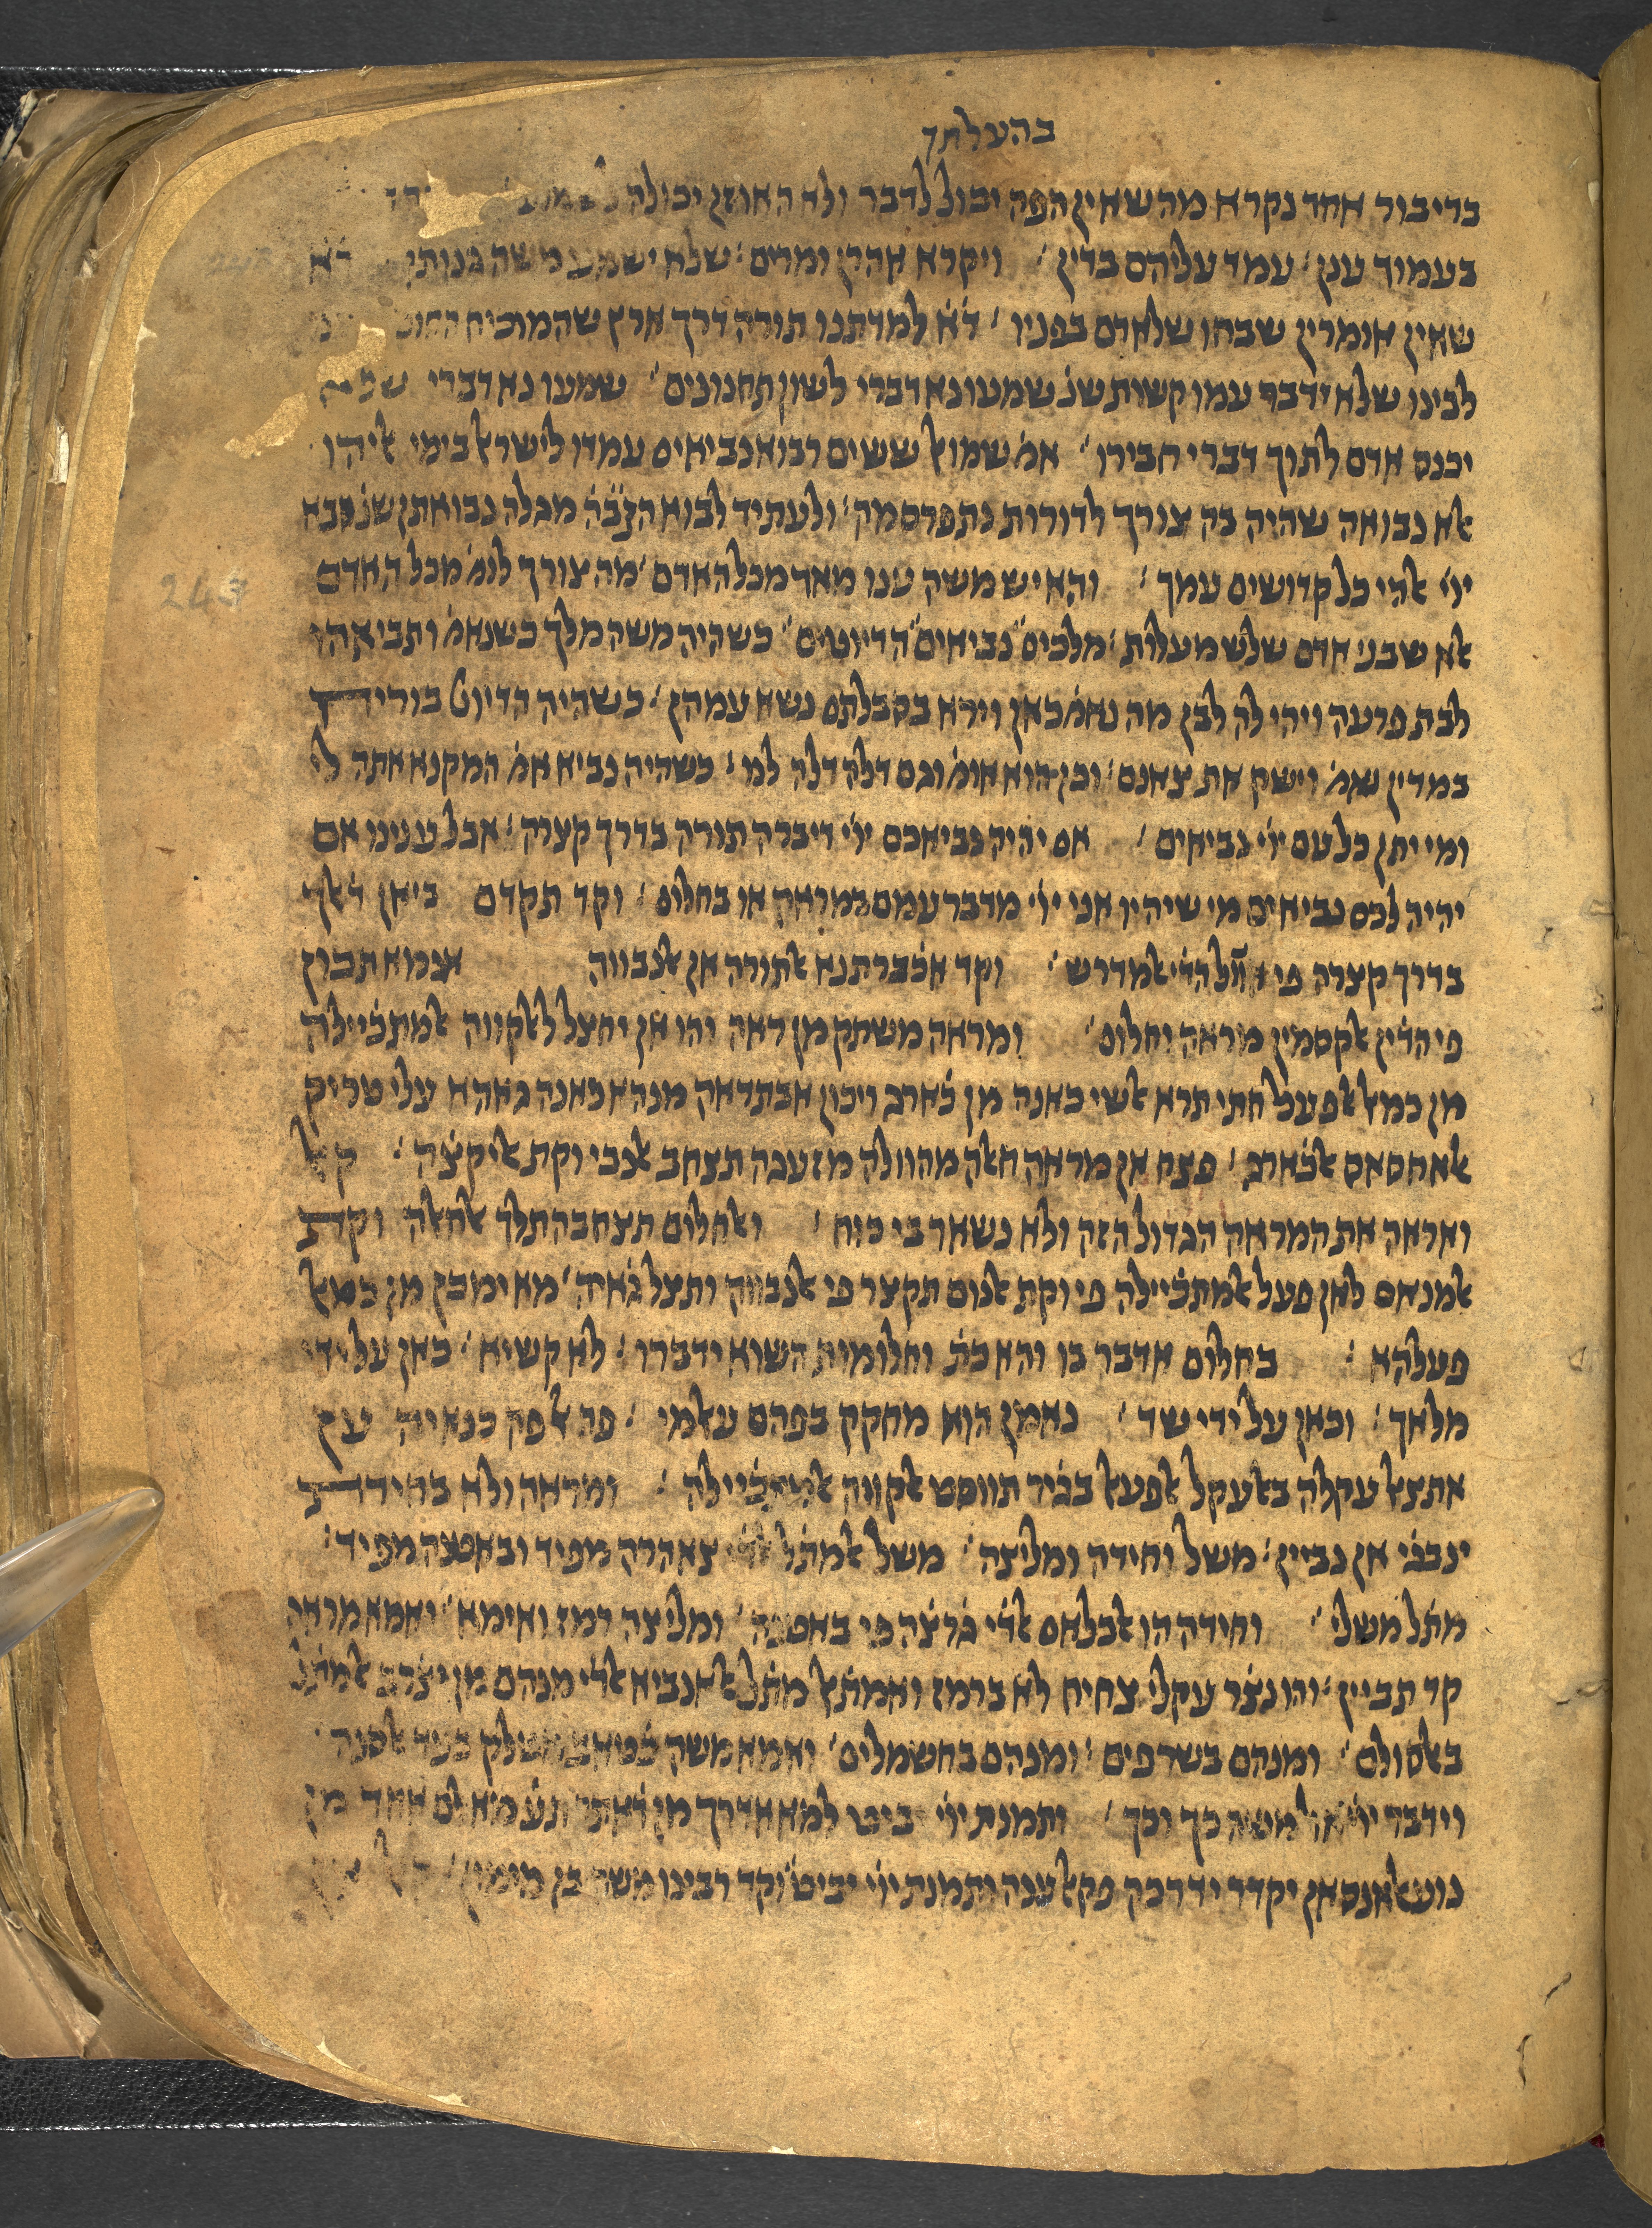 בהעלתך
בדיבור אחד נקרא מה שאין הפה יכול לדבר ולא האוזן יכולה
בעמוד ענן׃ עמד עליהם בדין׃ ויקרא אהרן ומרים׃ שלא ישמע משה
שאין אומרין שבחו שלאדם בפניו׃ ד֗א למדתנו תורה דרך ארץ שהמוכיח
לבינו שלא ידבר עמו קשות שנ֗ שמעו נא דברי לשון תחנונים׃ שמעו נא דברי
יכנס אדם לתוך דברי חבירו׃ אמ֗ שמואל ששים רבוא נביאים עמדו לישראל בימי אליהו
אלא נבואה שהיה בה צורך לדורות נתפרסמה׃ ולעתיד לבוא הקב֗ה מגלה נבואתן שנ֗ ובא
יוי אלהי כל קדושים עמך׃ והאיש משה ענו מאד מכל האדם׃ מה צורך לומ֗ מכל האדם
אלא שבני אדם שלש מעלות׃ מלכים נביאים הדיוטים׃ כשהיה משה מלך כשנאמ֗ ותביאהו
לבת פרעה ויהי לה לבן מה נאמ֗ כאן וירא בסבלתם נשא עמהן׃ כשהיה הדיוט בורידת
במדין נאמ֗ וישק את צאנם׃ וכן הוא אומ֗ וגם דלה דלה לנו׃ כשהיה נביא אמ֗ המקנא אתה לי
ומי יתן כל עם יוי נביאים׃ אם יהיה נביאכם יוי דיברה תורה בדרך קצרה׃ אבל ענינו אם
יהיה לכם נביאים מי שיהיו אני יוי מדבר עמם במראה או בחלום׃ וקד תקדם ביאן דלך
בדרך קצרה פי אלמדרש׃ וקד אכברתנא אלתורה אן אלנבווה אנמא תכון
פי הד֗ין אלקסמין מראה וחלום׃ ומראה משתק מן ראה והו אן יחצל ללקווה אלמתכ֗יילה
מן כמאל אלפעל חתי תרא אלשי כאנה מן כ֗ארג ויכון אבתדאה מנהא כאנה גאהא עלי טריק
אלאחסאס אלכ֗ארג׃ פצח אן מראה חאלה מהוולה מזעגה תצחב אלנבי וקת אליקצ֗ה׃ קאל
ואראה את המראה הגדולה הזה ולא נשאר בי כוח׃ ואלחלום תצחבה תלך אלחאלה וקת
אלמנאם לאן פעל אלמתכ֗יילה פי וקת אלנום תקצר פי אלנבווה ותצל גאיה׃ מא ימכן מן כמאל
פעלהא׃ בחלום אדבר בו והא כת֗ וחלומות השוא ידברו׃ לא קשיא׃ כאן על ידי
מלאך׃ וכאן על ידי שד׃ נאמן הוא מחקק בפהם עאלמי׃ פה אל פה כנאיה ען
אתצאל עקלה באלעקל אלפעאל בג֗יר תווסט אלקווה אלמתכ֗יילה׃ ומראה ולא בחידת
ינבג֗י אן נביין׃ משל וחידה ומליצה׃ משל אלמת֗ל צ֗אהרה מפיד ובאטנה מפיד׃
מת֗ל משלי׃ וחידה הו אלכלאם אלד֗י גרצ֗ה פי באטנה׃ ומליצה רמז ואימא׃ ואמא מראה
קד תביין׃ והו נצ֗ר עקלי צחיח לא ברמז ואמת֗אל מת֗ל אלאנביא אלד֗י מנהם מן יצ֗רב אלמת֗ל
באלסולם׃ ומנהם בשרפים׃ ומנהם בחשמלים׃ ואמא משה
וידבר יוי אל משה כך וכך׃ ותמנת יוי יביט למא אדרך מן אחד מן
נוע אלאנסאן יקדר ידרכה פקאל ענה ותמנת יוי יביט׃ וקד רבינו משה בן מימון